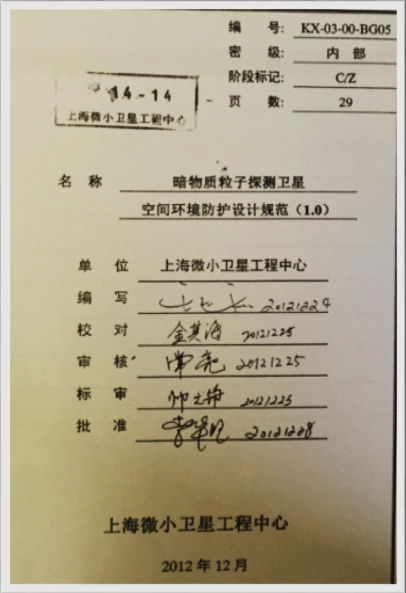 编 号: KX-03-00-BG05
密 级: 内 部
阶段标记: C/Z
页 数: 29
14-14
上海微小卫星工程中心
名 称 暗物质粒子探测卫星
空间环境防护设计规范（1.0）
单 位 上海微小卫星工程中心
编 写 20121224
校 对 金其海 20121225
审 核 常亮 20121225
标 审 20121225
批 准 20121228
上海微小卫星工程中心
2012 年 12 月